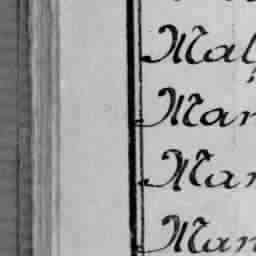 Mal
Mar
Mar
Man